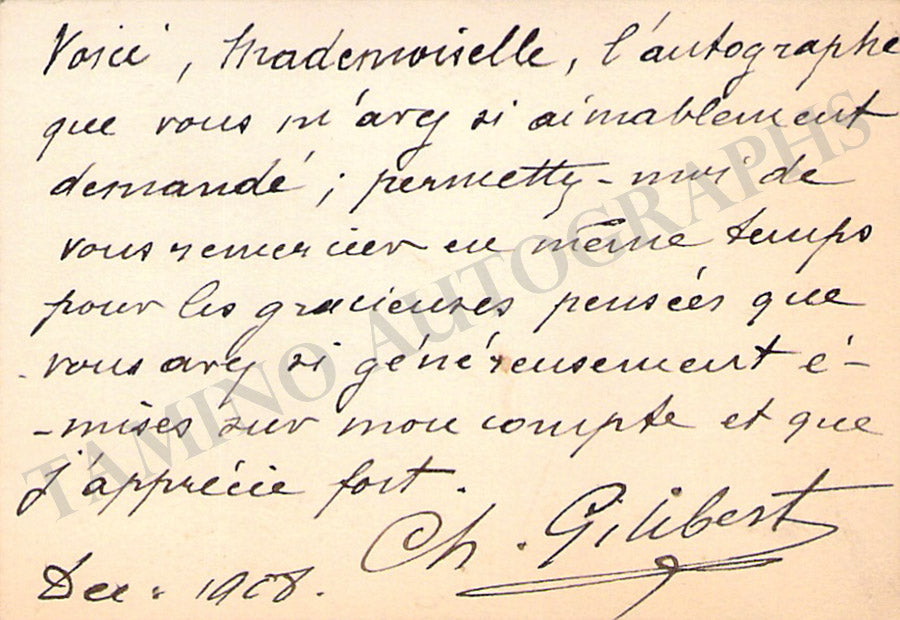 Voici, Mademoiselle, l'autographe
que vous m'avez si aimablement
demandé ; permettez-moi de
vous remercier en même temps
pour les gracieuses pensées que
vous avez si généreusement é-
-mises sur mon compte et que
j'apprécie fort.
Ch. Gilibert
Dec. 1908.
TAMINO AUTOGRAPHS